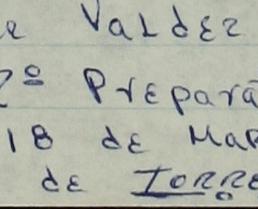 r Valdez
2º Prepara
18 de Mar
de Torre